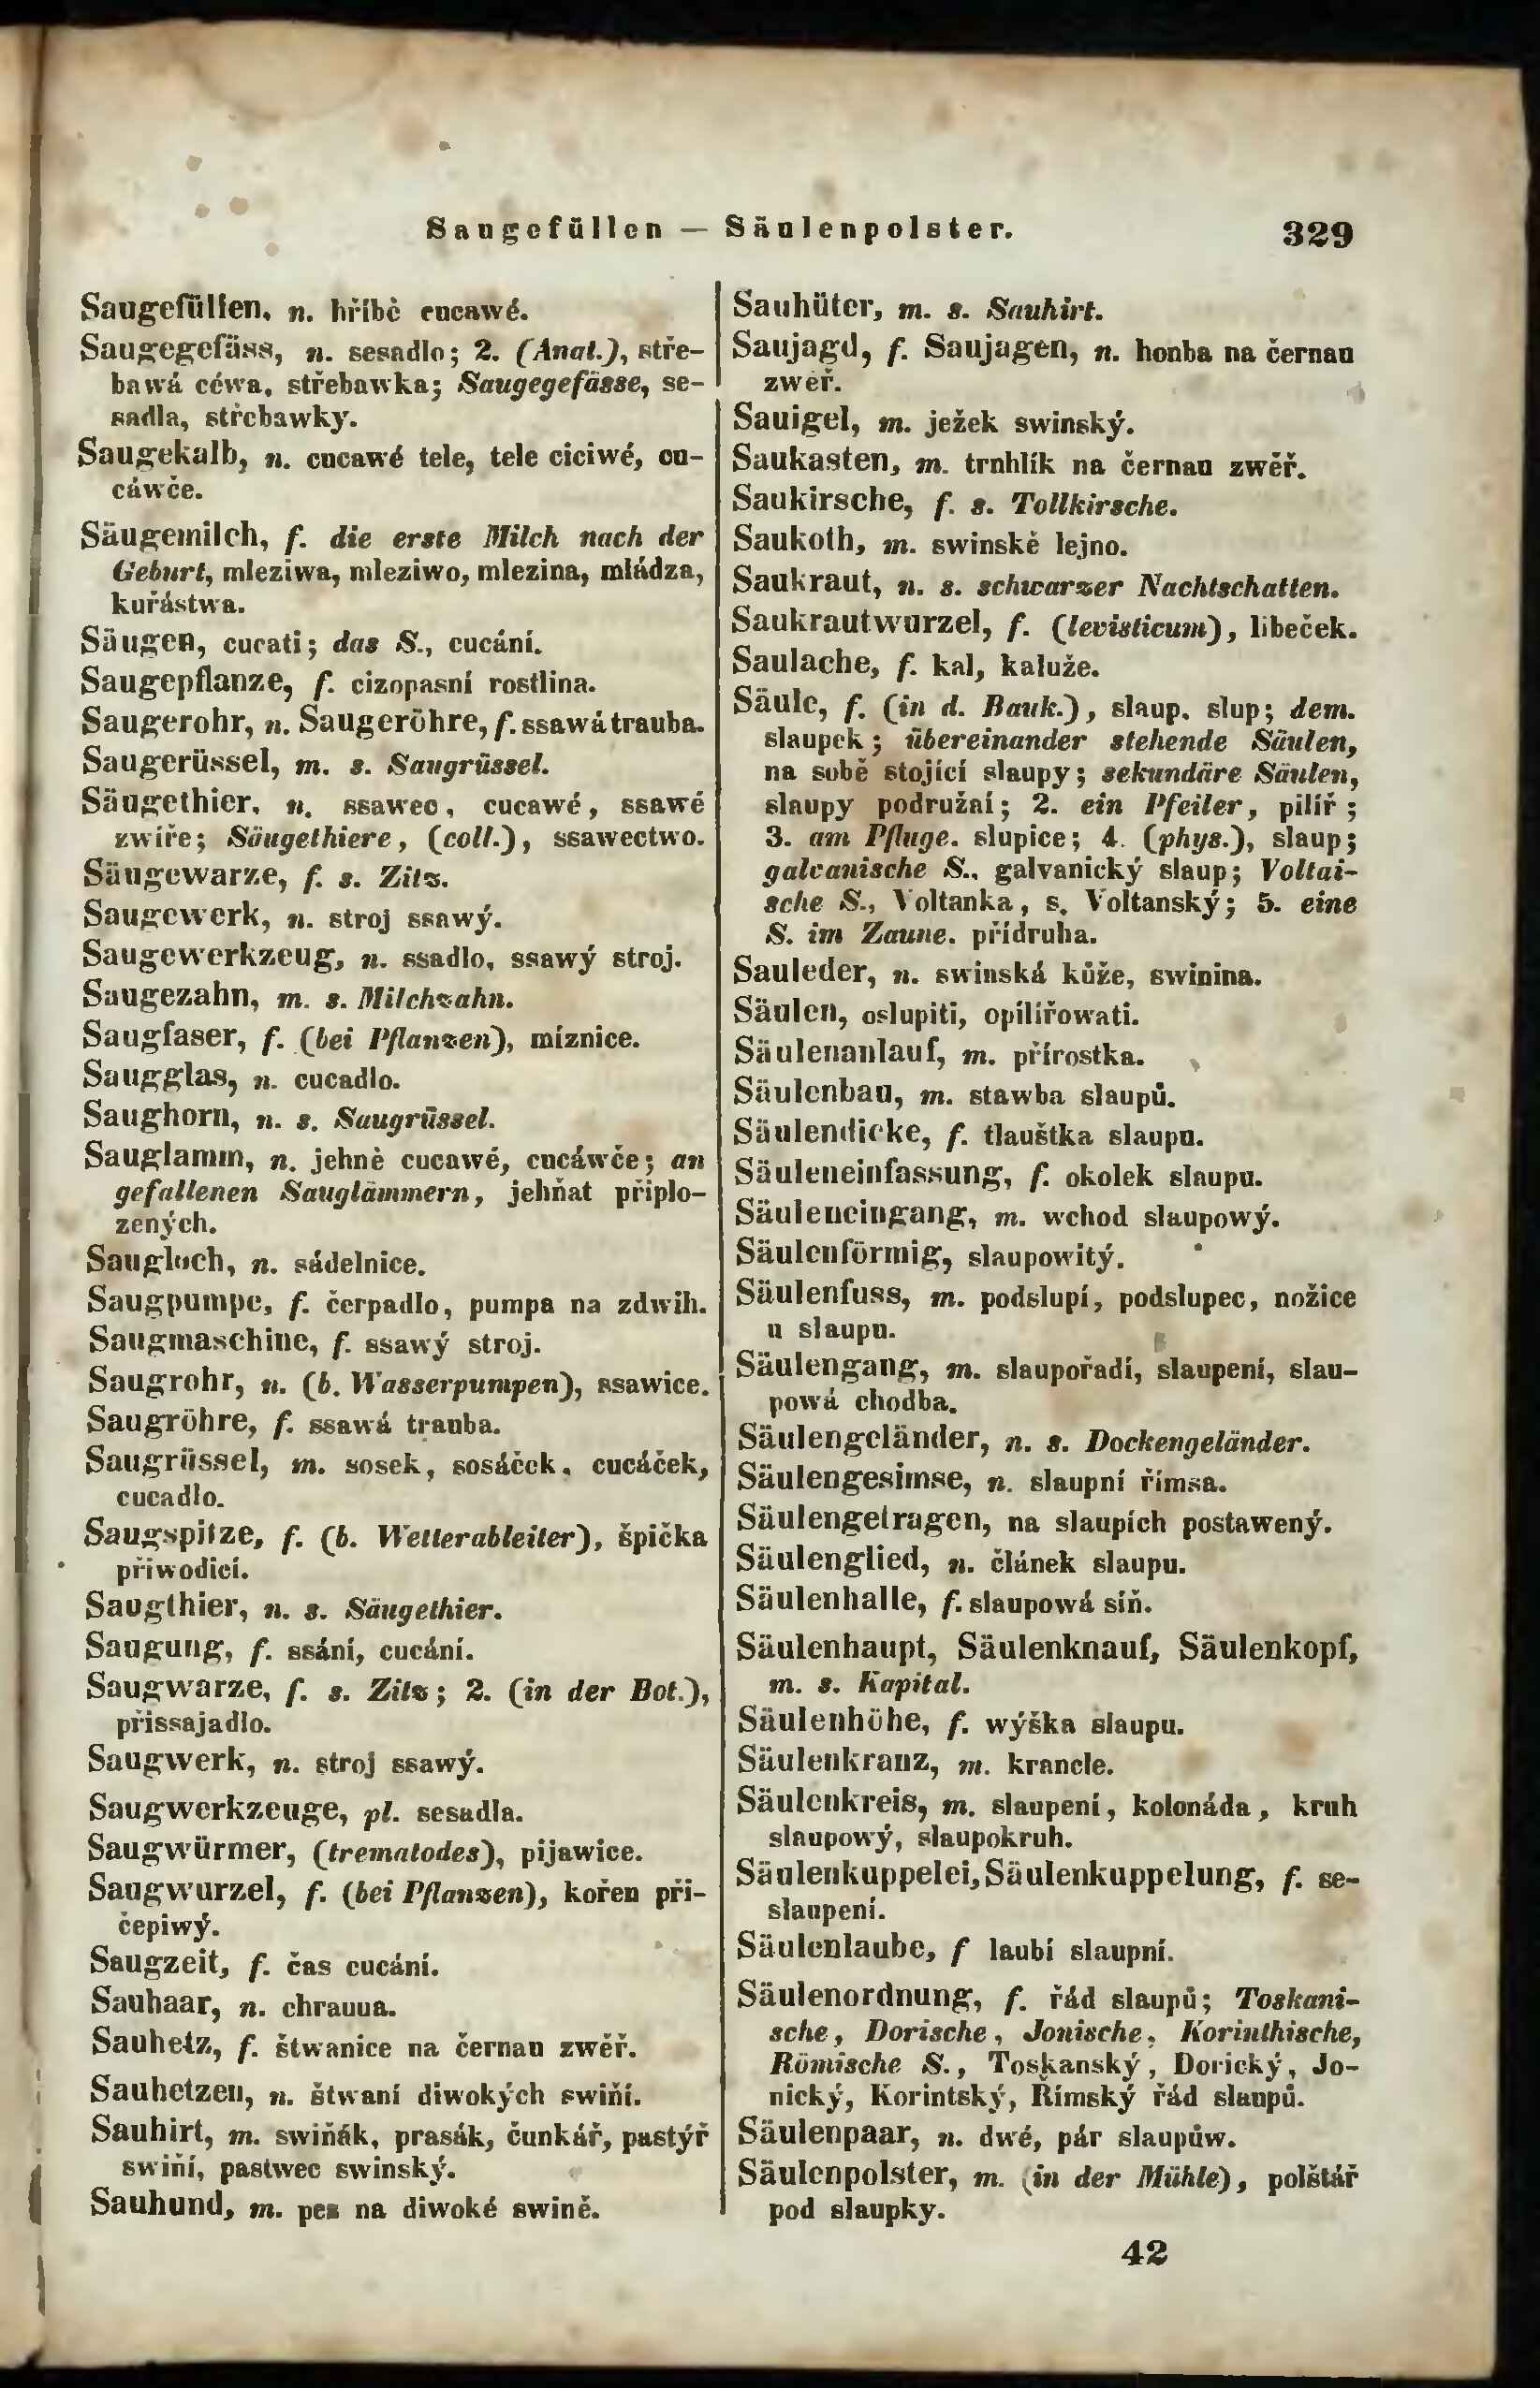 Saugefüllen — Säulenpolster.
329
Saugefüllen, n. hříbě cucawé.
Saugegefäss, n. sesadlo; 2. (Anat.), stře-
bawá céwa, střebawka; Saugegefässe, se-
sadla, střebawky.
Saugekalb, n. cucawé tele, tele ciciwé, cu-
cáwče.
Säugemilch, f. die erste Milch nach der
Geburt, mleziwa, mleziwo, mlezina, mládza,
kuřástwa.
Säugen, cucati; das S., cucání.
Saugepflanze, f. cizopasní rostlina.
Saugerohr, n. Saugeröhre, f. ssawá trauba.
Saugerüssel, m. s. Saugrüssel.
Säugethier, n. ssawec, cucawé, ssawé
zwíře; Säugethiere, (coll.), ssawectwo.
Säugewarze, f. s. Zitz.
Saugewerk, n. stroj ssawý.
Saugewerkzeug, n. ssadlo, ssawý stroj.
Saugezahn, m. s. Milchzahn.
Saugfaser, f. (bei Pflanzen), míznice.
Saugglas, n. cucadlo.
Saughorn, n. s. Saugrüssel.
Sauglamm, n. jehně cucawé, cucáwče; an
gefallenen Sauglämmern, jehňat připlo-
zených.
Saugloch, n. sádelnice.
Saugpumpe, f. čerpadlo, pumpa na zdwih.
Saugmaschine, f. ssawý stroj.
Saugrohr, n. (b. Wasserpumpen), ssawice.
Saugröhre, f. ssawá trauba.
Saugrüssel, m. sosek, sosáček, cucáček,
cucadlo.
Saugspitze, f. (b. Wetterableiter), špička
přiwodicí.
Saugthier, n. s. Säugethier.
Saugung, f. ssání, cucání.
Saugwarze, f. s. Zitz; 2. (in der Bot.),
přissajadlo.
Saugwerk, n. stroj ssawý.
Saugwerkzeuge, pl. sesadla.
Saugwürmer, (trematodes), pijawice.
Saugwurzel, f. (bei Pflanzen), kořen při-
čepiwý.
Saugzeit, f. čas cucání.
Sauhaar, n. chrauua.
Sauhetz, f. štwanice na černau zwěř.
Sauhetzen, n. štwaní diwokých swiňí.
Sauhirt, m. swiňák, prasák, čunkář, pastýř
swiňí, pastwec swinský.
Sauhund, m. pes na diwoké swině.
Sauhüter, m. s. Sauhirt.
Saujagd, f. Saujagen, n. honba na černau
zwěř.
Sauigel, m. ježek swinský.
Saukasten, m. truhlík na černau zwěř.
Saukirsche, f. s. Tollkirsche.
Saukoth, m. swinskě lejno.
Saukraut, n. s. schwarzer Nachtschatten.
Saukrautwurzel, f. (levisticum), libeček.
Saulache, f. kal, kaluže.
Säule, f. (in d. Bauk.), slaup, slup; dem.
slaupek; übereinander stehende Säulen,
na sobě stojící slaupy; sekundäre Säulen,
slaupy podružní; 2. ein Pfeiler, pilíř;
3. am Pfluge, slupice; 4. (phys.), slaup;
galvanische S., galvanický slaup; Voltai-
sche S., Voltanka, s. Voltanský; 5. eine
S. im Zaune, přídruha.
Sauleder, n. swinská kůže, swinina.
Säulen, oslupiti, opílířowati.
Säulenanlauf, m. přírostka.
Säulenbau, m. stawba slaupů.
Säulendicke, f. tlauštka slaupu.
Säuleneinfassung, f. okolek slaupu.
Säuleneingang, m. wchod slaupowý.
Säulenförmig, slaupowitý.
Säulenfuss, m. podslupí, podslupec, nožice
u slaupu.
Säulengang, m. slaupořadí, slaupení, slau-
powá chodba.
Säulengeländer, n. s. Dockengeländer.
Säulengesimse, n. slaupní římsa.
Säulengetragen, na slaupích postawený.
Säulenglied, n. článek slaupu.
Säulenhalle, f. slaupowá síň.
Säulenhaupt, Säulenknauf, Säulenkopf,
m. s. Kapital.
Säulenhöhe, f. wýška slaupu.
Säulenkranz, m. krancle.
Säulenkreis, m. slaupení, kolonáda, kruh
slaupowý, slaupokruh.
Säulenkuppelei, Säulenkuppelung, f. se-
slaupení.
Säulenlaube, f laubí slaupní.
Säulenordnung, f. řád slaupů; Toskani-
sche, Dorische, Jonische, Korinthische,
Römische S., Toskanský, Dorický, Jo-
nický, Korintský, Římský řád slaupů.
Säulenpaar, n. dwé, pár slaupůw.
Säulenpolster, m. (in der Mühle), polštář
pod slaupky.
42